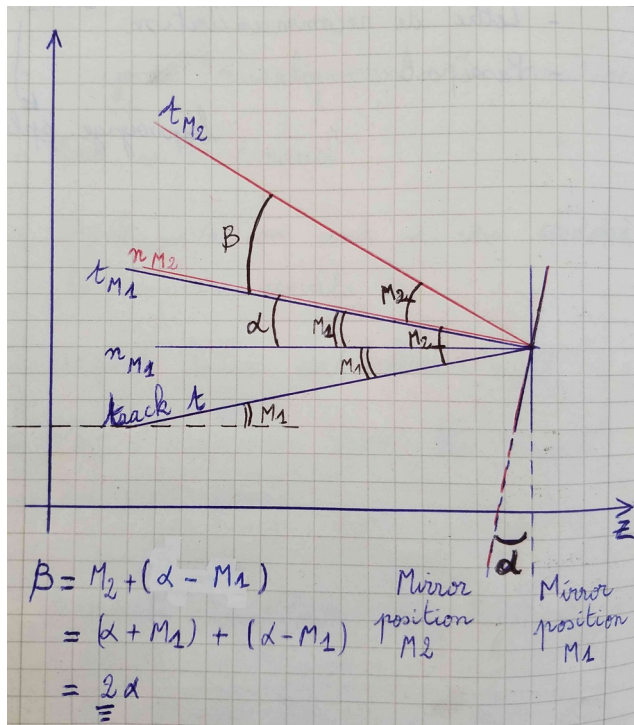 t_M2
β
n_M2
t_M1
M2
α
M1
M2
n_M1
M1
track t
M1
z
α
β = M2 + (α - M1)
= (α + M1) + (α - M1)
= 2α
Mirror
position
M2
Mirror
position
M1